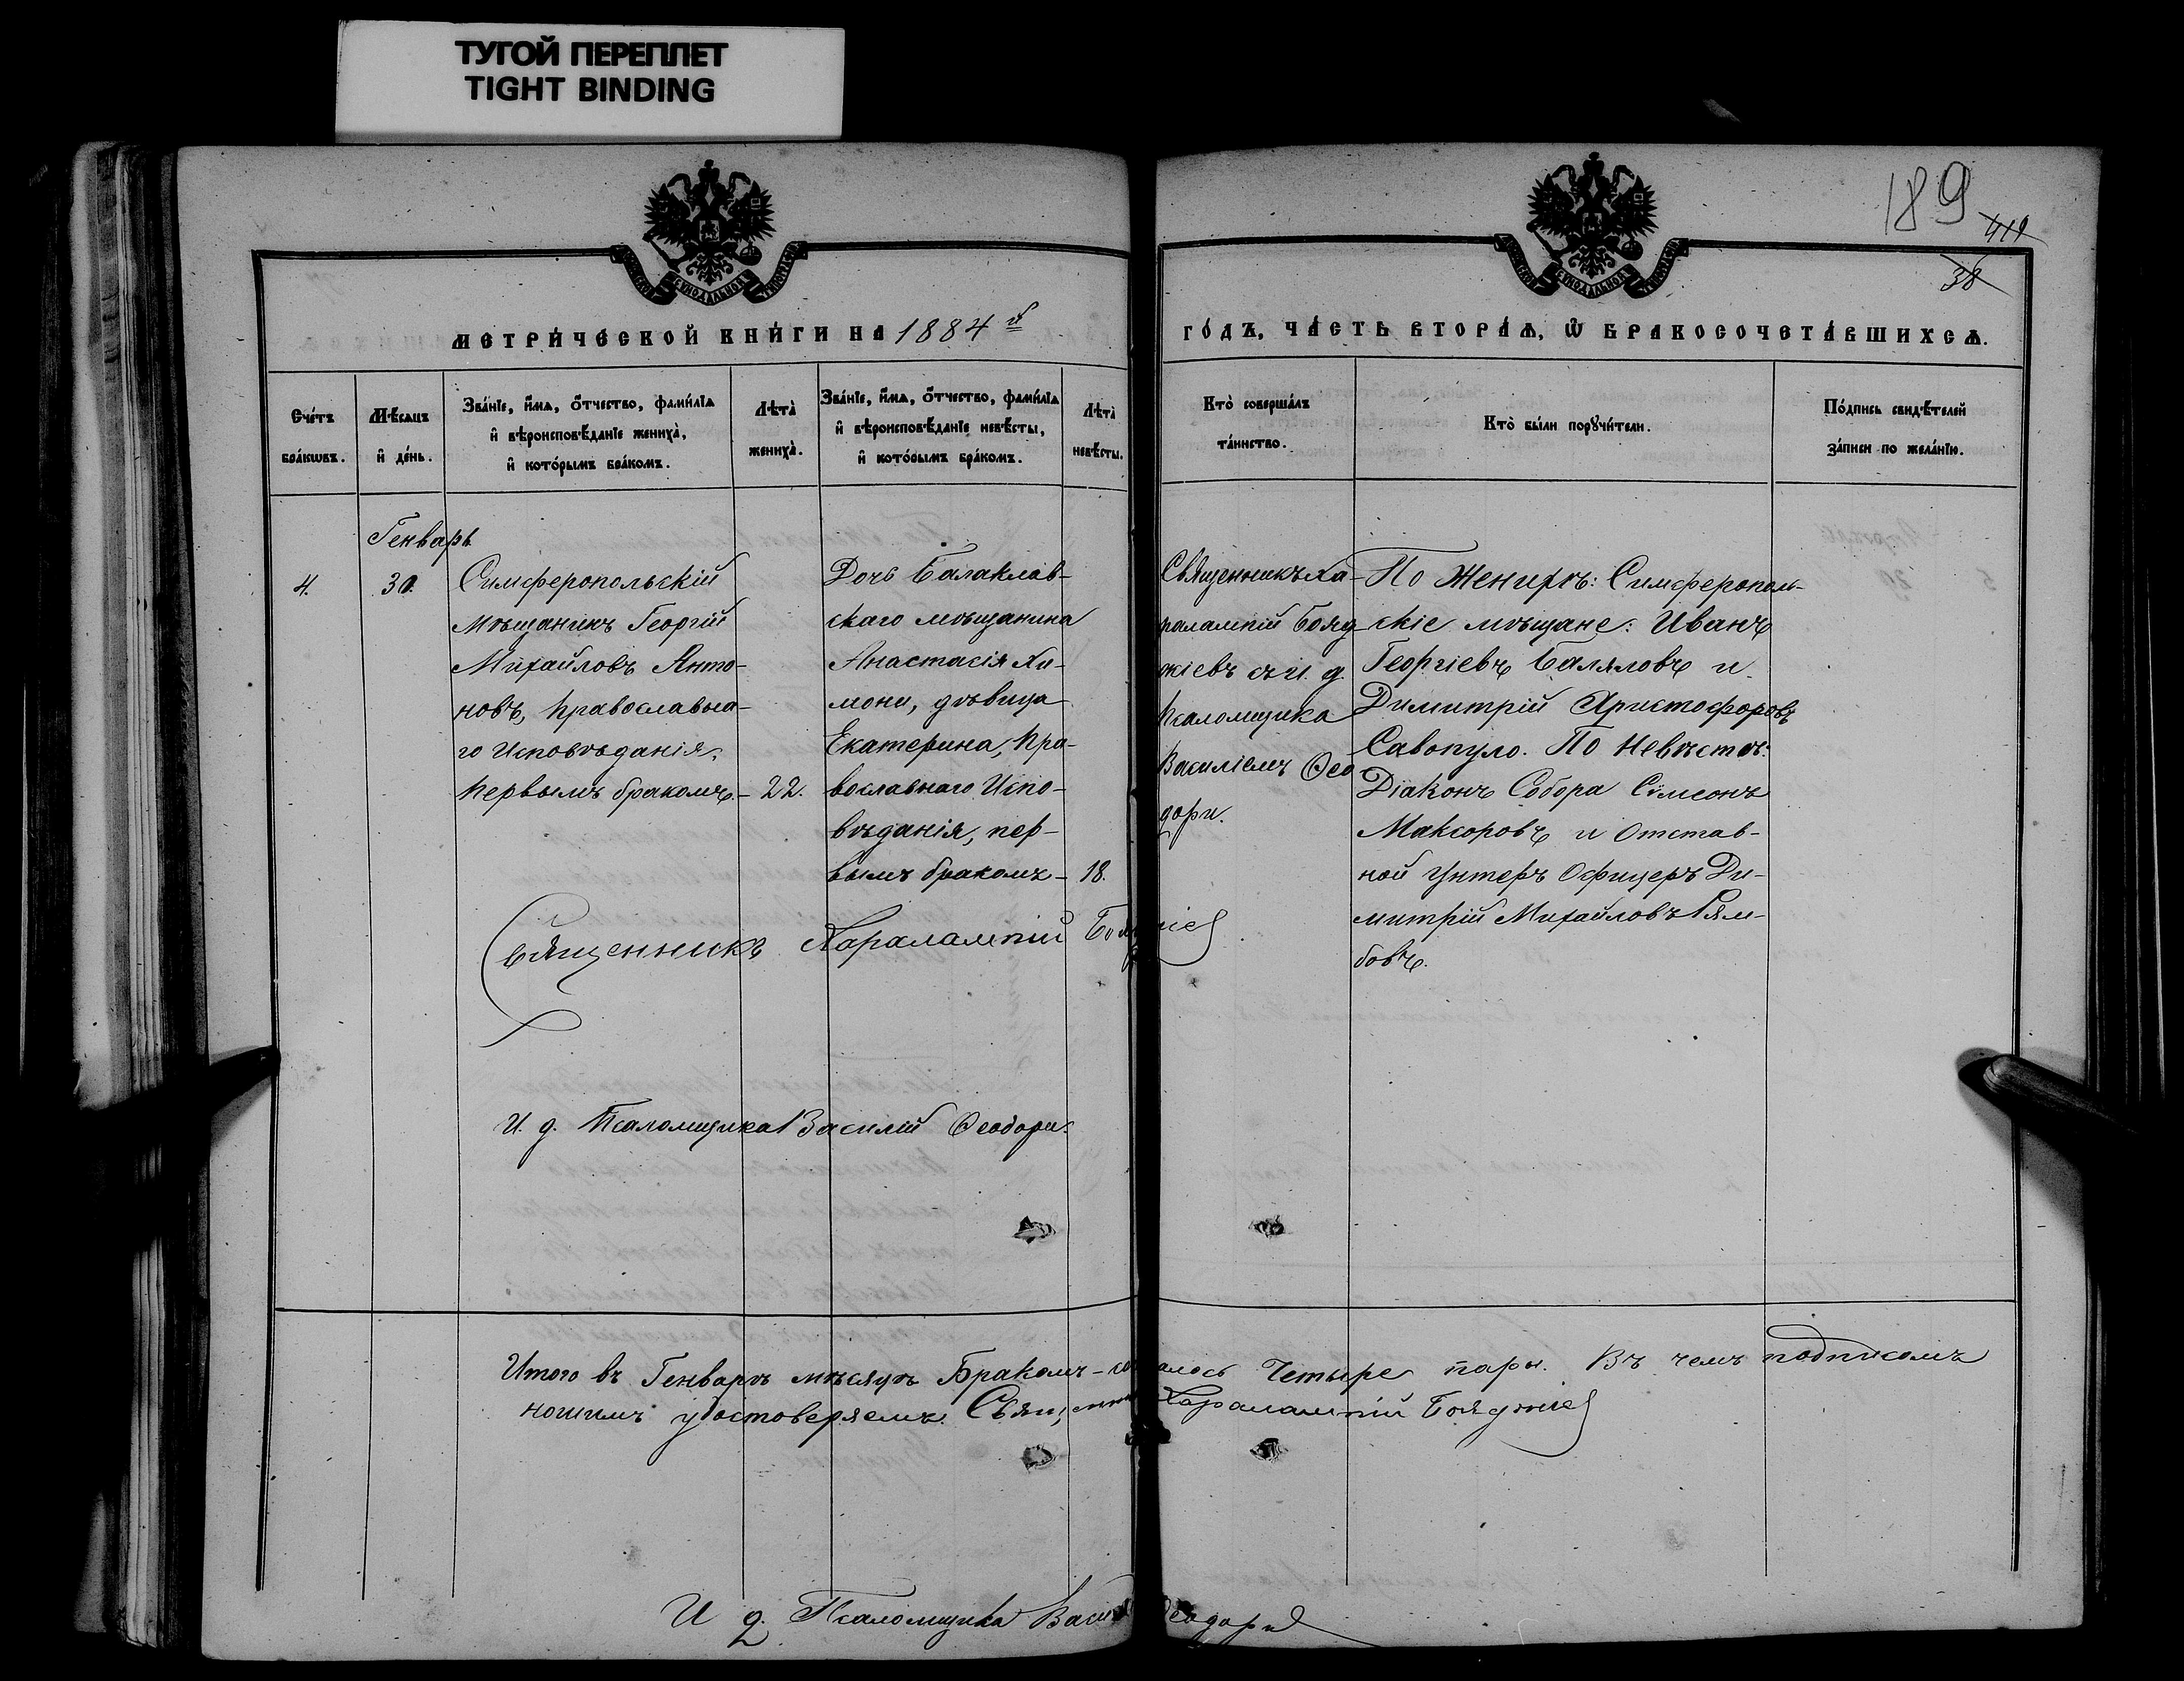 ТУГОЙ ПЕРЕПЛЕТ
TIGHT BINDING
189
419
38
МЕТРИ́ЧЕСКОЙ КНИ́ГИ НА 1884 й
ГО́ДЪ, ЧА́СТЬ ВТОРА́Ѧ, Ѽ БРАКОСОЧЕТА́ВШИХСѦ.
Сче́тъ
бра́кѡвъ.
Мѣ́сѧцъ
и҆ де́нь.
Зва́нїе, и҆́мѧ, ѻ҆́тчество, фами́лїѧ
и҆ вѣроисповѣ́данїе жениха̀,
и҆ кото́рымъ бра́комъ.
Лѣ́та̀
жениха̀.
Зва́нїе, и҆́мѧ, ѻ҆́тчество, фами́лїѧ
и҆ вѣроисповѣ́данїе невѣ́сты,
и҆ кото́рымъ бра́комъ.
Лѣ́та̀
невѣ́сты.
Кто̀ соверша́лъ
та́инство.
Кто̀ бы́ли порꙋчи́тели.
По́дпись свидѣ́телей
за́писи по жела́нїю.
Генварь
4.
30.
Симферопольскій
мѣщанинъ Георгій
Михайловъ Анто-
новъ, православна-
го Исповѣданія,
первымъ бракомъ –
22.
Дочь Балаклав-
скаго мѣщанина
Анастасія Хи-
мони, дѣвица
Екатерина, Пра-
вославнаго Испо-
вѣданія, пер-
вымъ бракомъ –
18.
Священникъ Ха-
ралампій Бояд
жіевъ съ и. д.
псаломщика
Василіемъ Ѳео
дори.
По Женихѣ: Симферополь-
скіе мѣщане: Иванъ
Георгіевъ Баляловъ и
Димитрій Христофоровъ
Савопуло. По Невѣстѣ:
Діаконъ Собора Сѵмеонъ
Максоровъ и Отстав-
ной Унтеръ Офицеръ Ди-
митрій Михайловъ Рям-
бовъ.
Священникъ Харалампій
И. д. Псаломщика Василій Ѳеодори.
Итого въ Генварѣ мѣсяцѣ Бракомъ – Четыре пары. Въ чемъ подписомъ
нашимъ удостоверяемъ. Священникъ Харалампій Бояджіев
И д. Псаломщика Василій Ѳеодори